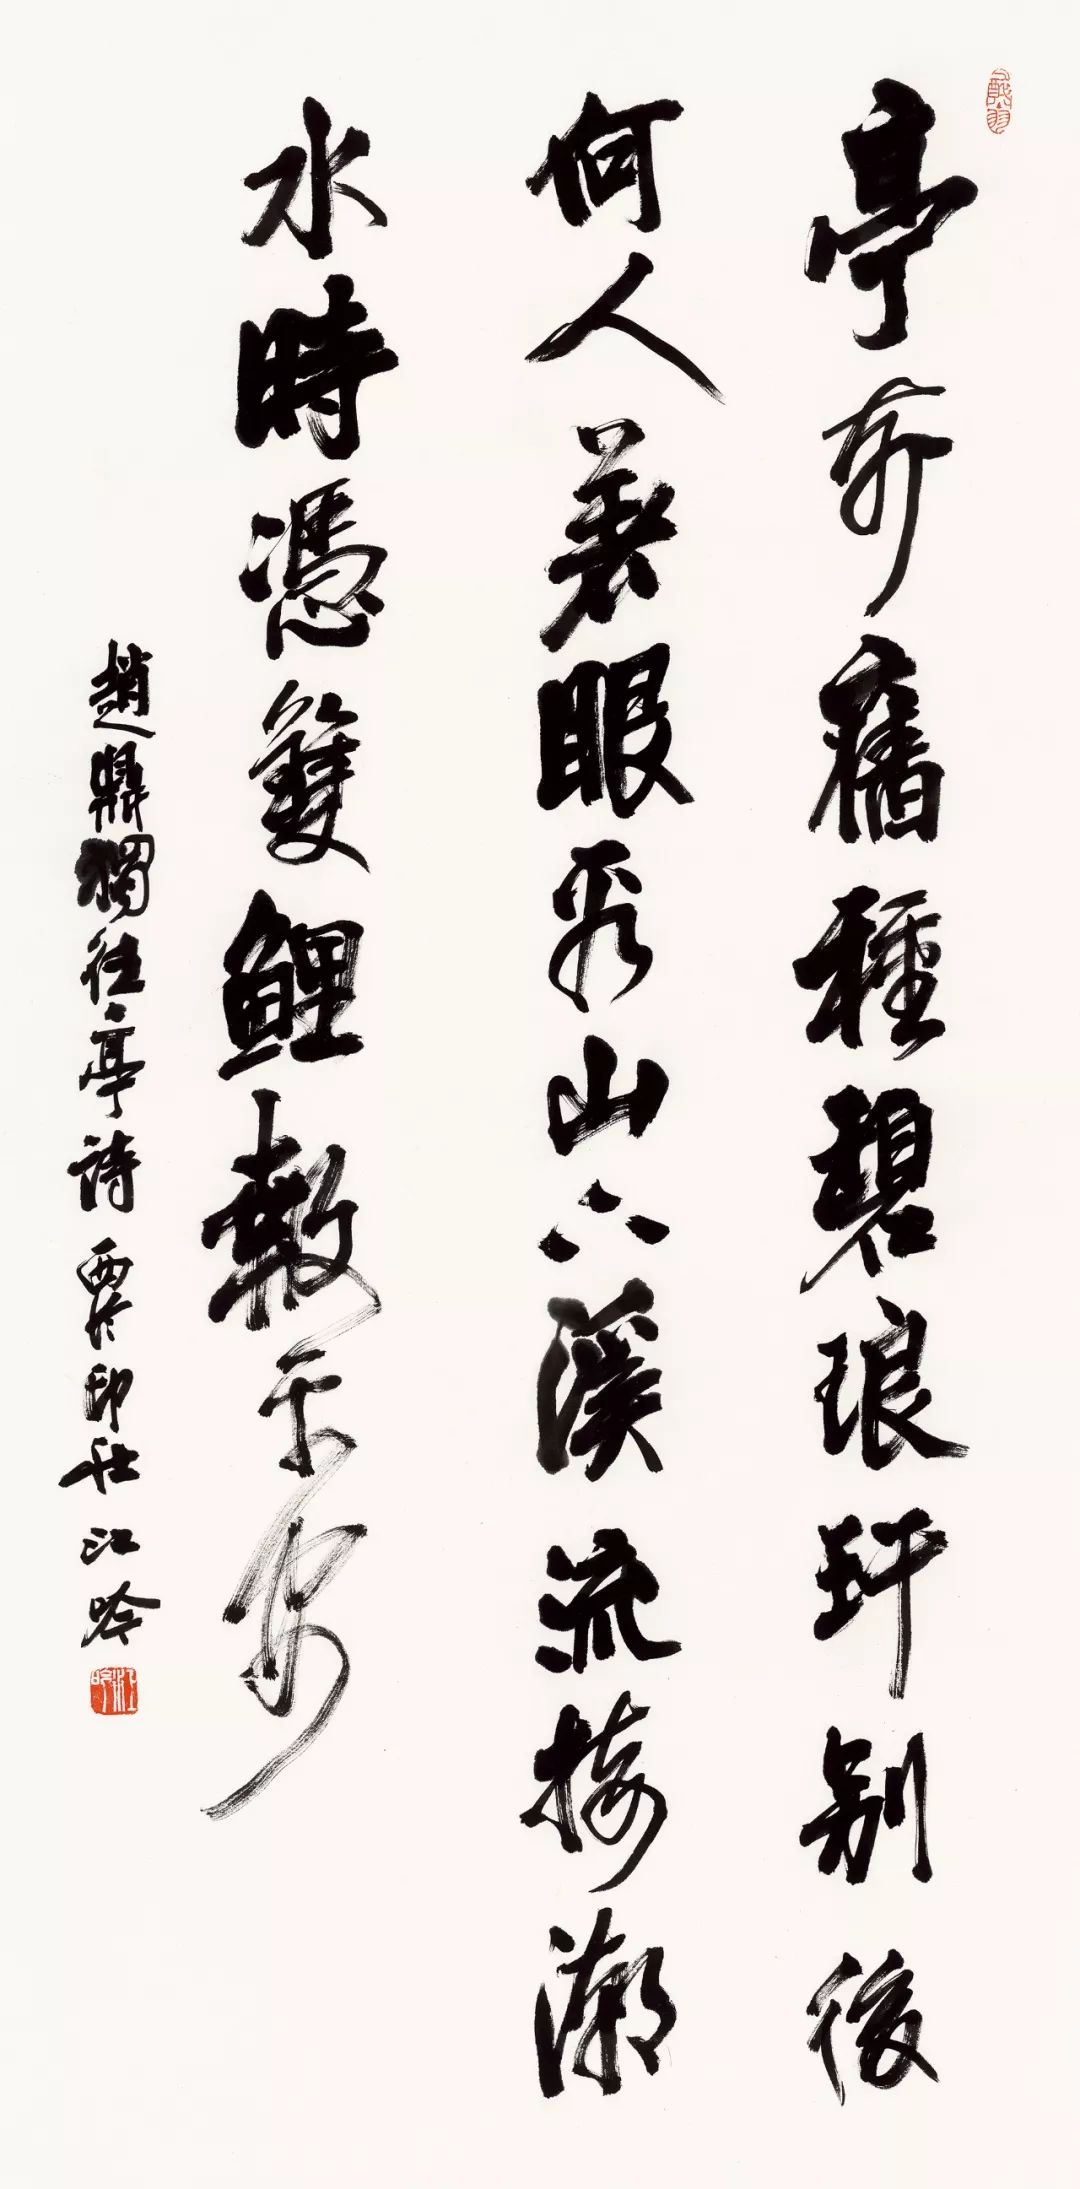 亭前舊種碧琅玕别後
何人著眼看山下溪流接潮
水時憑雙鯉報平安
趙鼎獨往亭詩西泠印社江吟
江吟